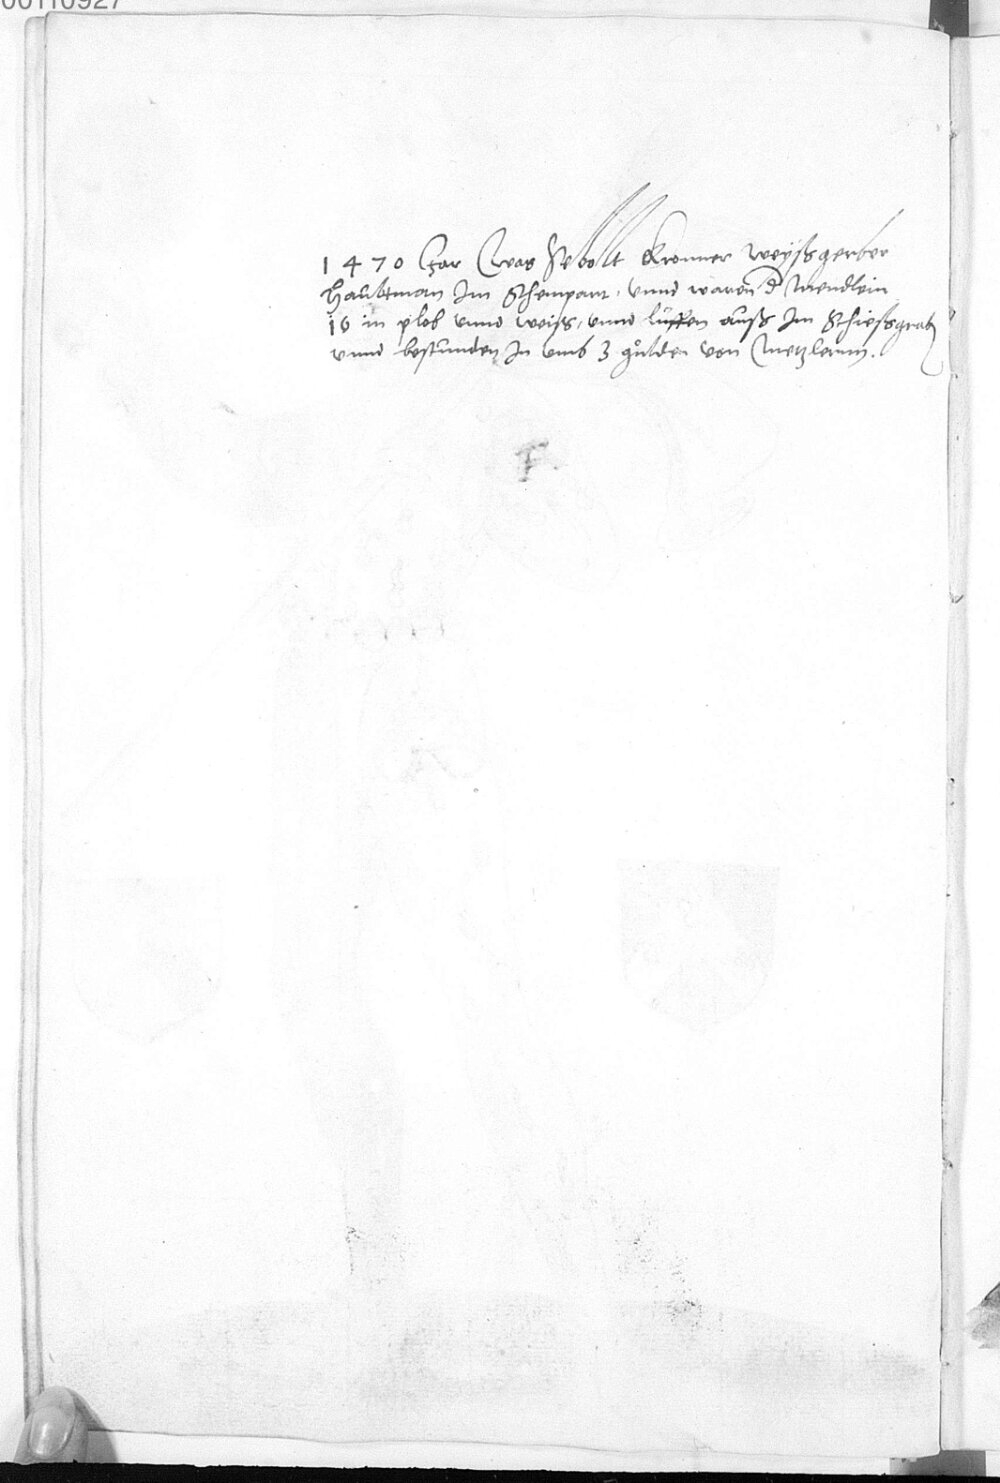 00110927
1470 Jar was Sebolt Kronner weyssgerber
Haubtman Im Schempart, vnnd waren d Mendlein
16 in plob vnnd weiss, vnnd lüffen auss Im Schiessgrab
vnnd bestunden In vmb 3 gulden von Metzlernn.